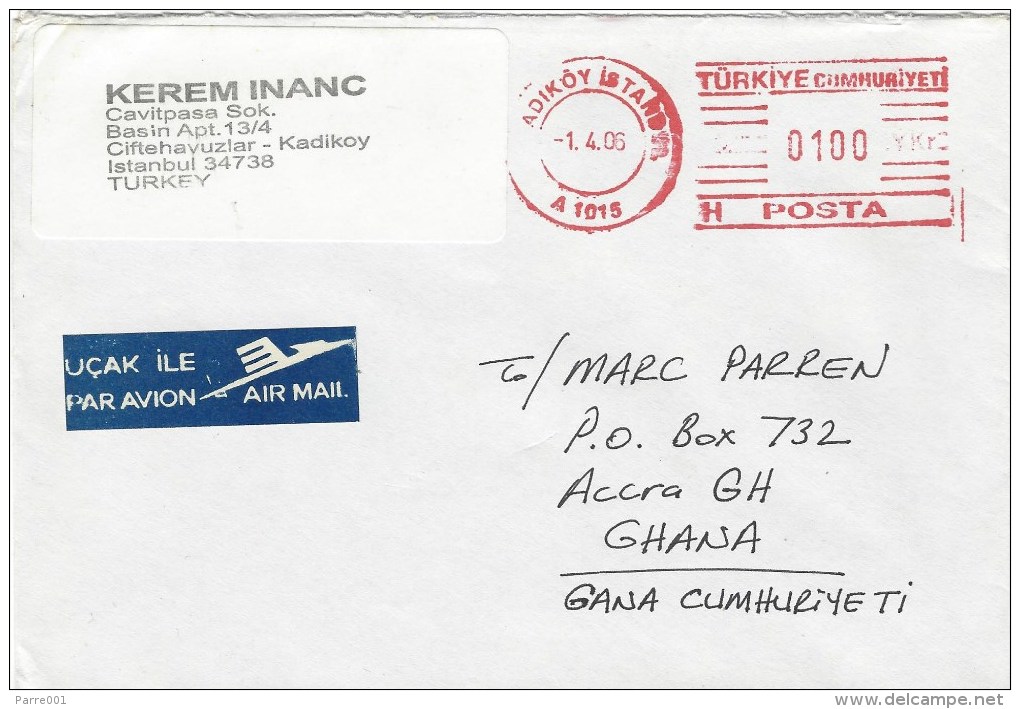 KEREM INANC
Cavitpasa Sok.
Basin Apt.13/4
Ciftehavuzlar - Kadikoy
Istanbul 34738
TURKEY
ADIKÖY İSTANB
-1. 4.06
A 1015
TÜRKİYE CUMHURİYETİ
0100 YKr
H POSTA
UÇAK İLE
PAR AVION AIR MAIL.
To/ MARC PARREN
P.O. Box 732
Accra GH
GHANA
GANA CUMHURİYETİ
Parre001
www.delcampe.net